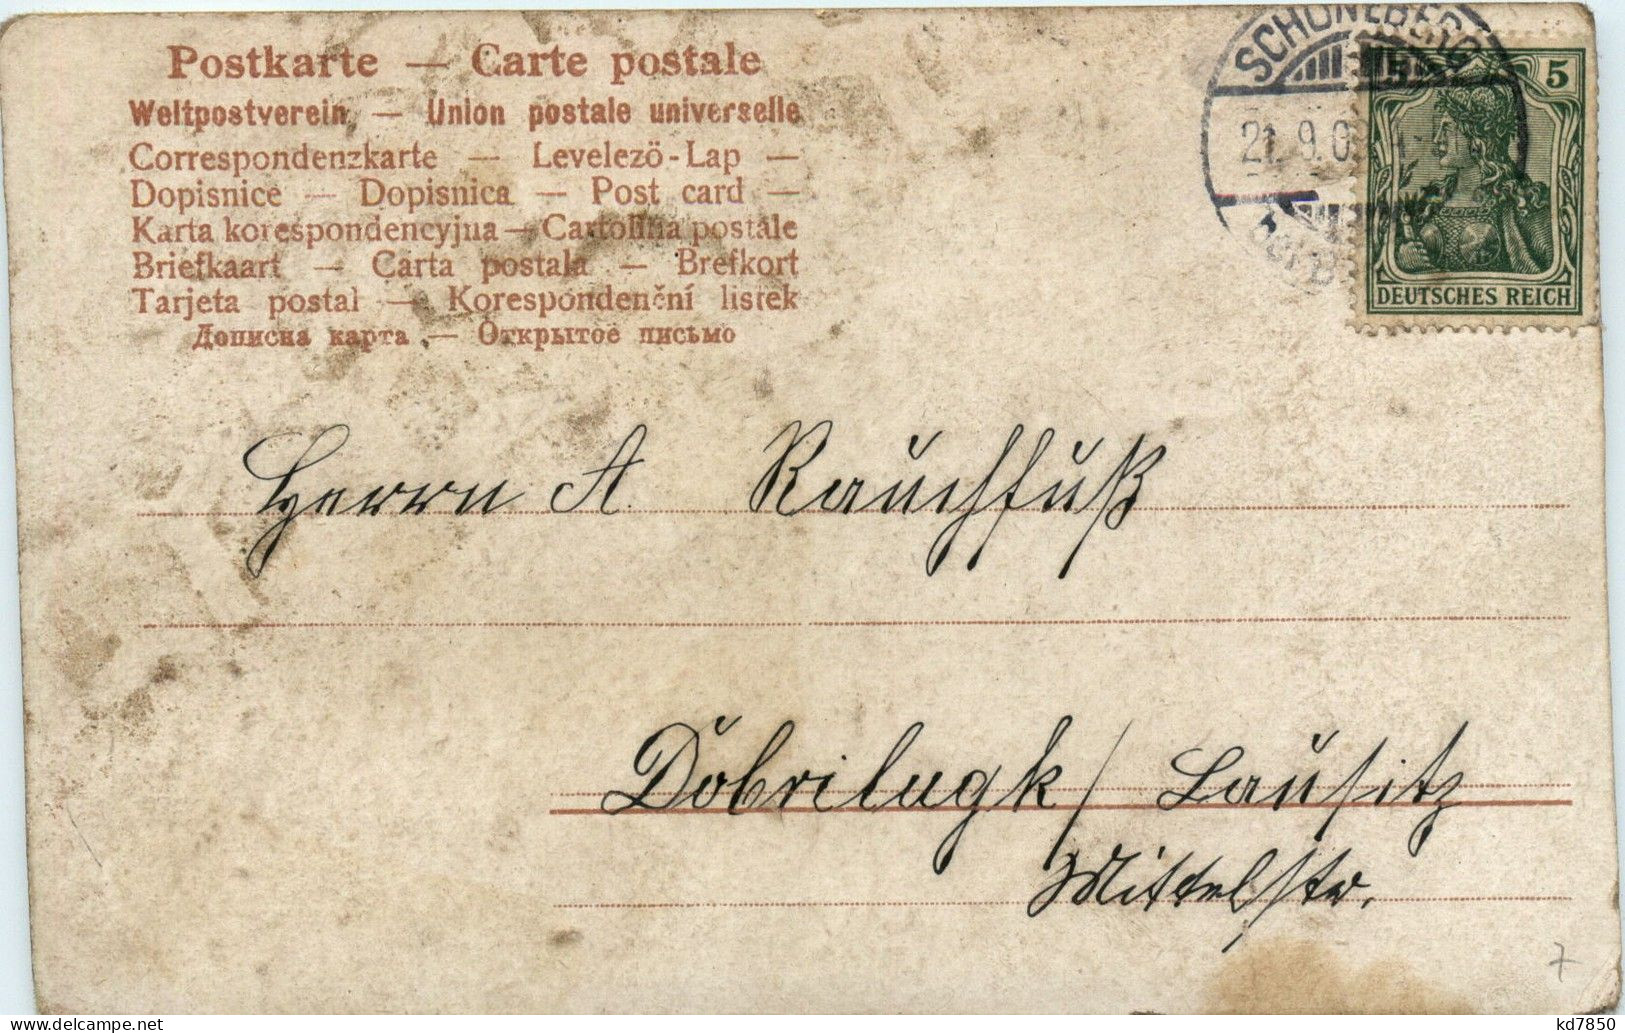 Postkarte — Carte postale
Weltpostverein — Union postale universelle
Correspondenzkarte — Levelező-Lap —
Dopisnice — Dopisnica — Post card —
Karta korespondencyjna — Cartolina postale
Briefkaart — Carta postala — Brefkort
Tarjeta postal — Korespondenční listek
Дописна карта — Открытое письмо
SCHÖNEBERG
21.9.0
5
DEUTSCHES REICH
Herrn A. Rauchfuß
Dobrilugk / Lausitz
Mittelstr.
7
kd7850